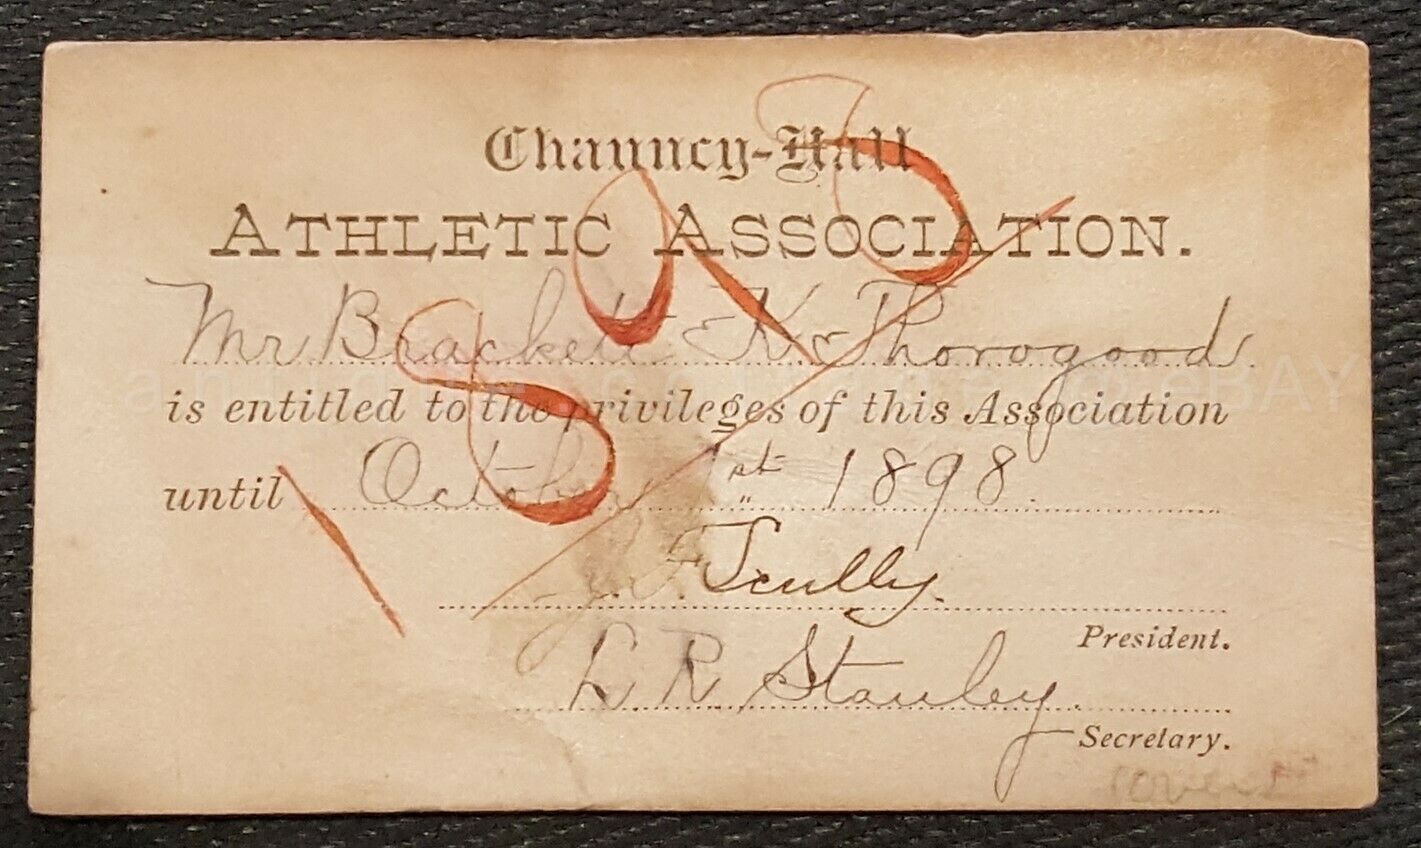 Chauncy-Hall
ATHLETIC ASSOCIATION.
Mr Brackett K Thorogood
is entitled to the privileges of this Association
until October 1st 1898.
J. F. Scully.
President.
L. R. Stanley.
Secretary.
1898